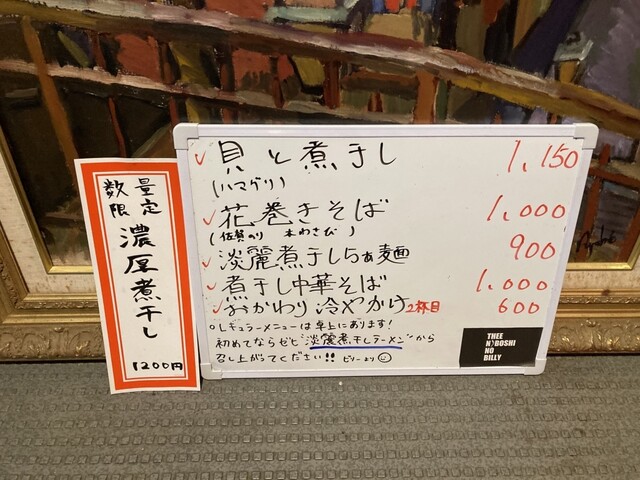 数量
限定
濃厚煮干し
1200円
貝と煮干し 1,150
(ハマグリ)
花巻きそば 1,000
(佐賀のり 本わさび)
淡麗煮干しらぁ麺 900
煮干し中華そば 1,000
おかわり冷やかけ2杯目 600
○レギュラーメニューは卓上にあります!
初めてならゼヒ"淡麗煮干しラーメン"から
召し上がってください!! ビリーより
THEE
NIBOSHI
NO
BILLY